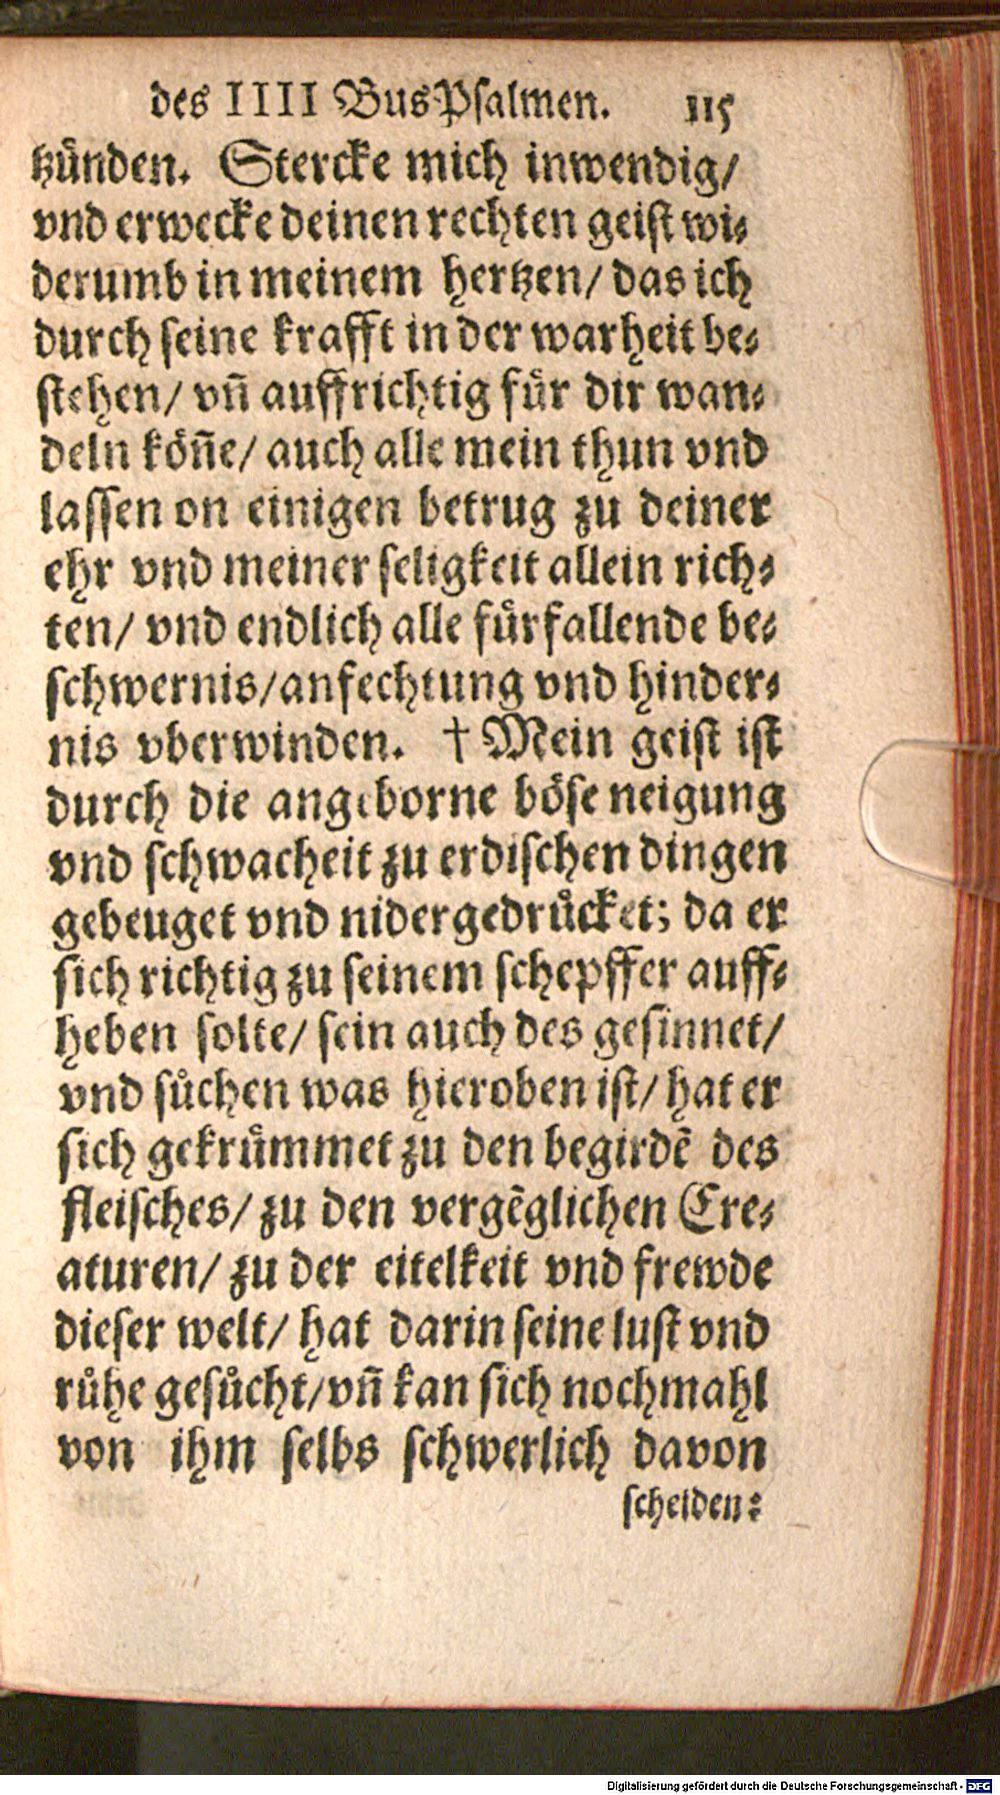 des IIII BusPsalmen. 115
tzünden. Stercke mich inwendig/
vnd erwecke deinen rechten geist wi⸗
derumb in meinem hertzen/ das ich
durch seine krafft in der warheit be⸗
stehen/ vñ auffrichtig fuͤr dir wan⸗
deln koͤñe/ auch alle mein thun vnd
lassen on einigen betrug zu deiner
ehr vnd meiner seligkeit allein rich⸗
ten/ vnd endlich alle fuͤrfallende be⸗
schwernis/anfechtung vnd hinder⸗
nis vberwinden. † Mein geist ist
durch die angeborne boͤse neigung
vnd schwacheit zu erdischen dingen
gebeuget vnd nidergedruͤcket; da er
sich richtig zu seinem schepffer auff⸗
heben solte/ sein auch des gesinnet/
vnd suͤchen was hieroben ist/ hat er
sich gekruͤmmet zu den begirdẽ des
fleisches/ zu den vergẽglichen Cre⸗
aturen/ zu der eitelkeit vnd frewde
dieser welt/ hat darin seine lust vnd
růhe gesůcht/vñ kan sich nochmahl
von ihm selbs schwerlich davon
scheiden:
Digitalisierung gefördert durch die Deutsche Forschungsgemeinschaft - DFG